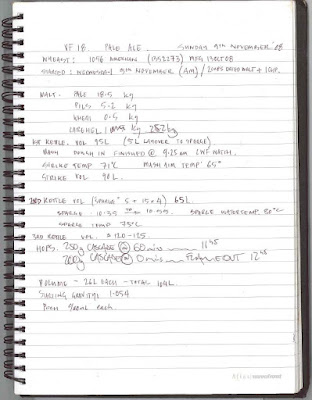 VF 18. PALE ALE. SUNDAY 9TH NOVEMBER 08
WYEAST: 1056 AMERICAN (1332273) MFG 13OCT08
9TH NOVEMBER (AM)
MALT. PALE 18.5 Kg
PILS 5.2 Kg
WHEAT 0.5 Kg
Kg
KETTLE VOL 95L (5L LEFTOVER TO SPARGE)
MASH DOUGH IN FINISHED @ 9.25 am
STRIKE TEMP 77°C MASH AIM TEMP 65°
STRIKE VOL 90L.
2ND KETTLE VOL (SPARGE 5 + 15 + 4) 65L
SPARGE 10.35 SPARGE WATER TEMP 80°C
SPARGE TEMP 75°C
3RD KETTLE VOL. = 120-125
HOPS. 250g CASCADE 60 min 11 45
200g CASCADE 0 min FLAMEOUT 12 45
VOLUME - 26L EACH - TOTAL 104L
STARTING GRAVITY 1.054
each